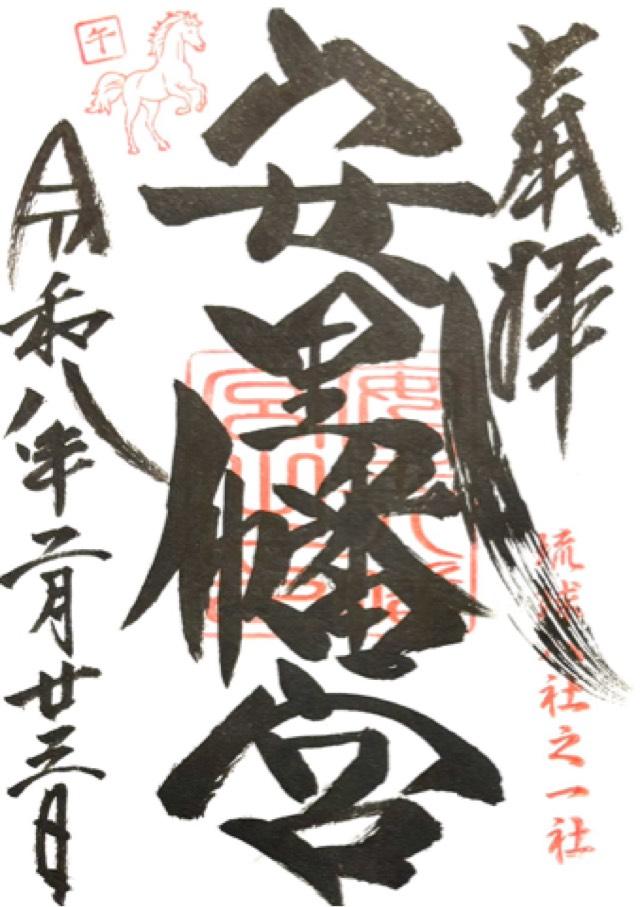 奉拝
琉球八社之一社
安里八幡宮
令和八年二月廿三日
午